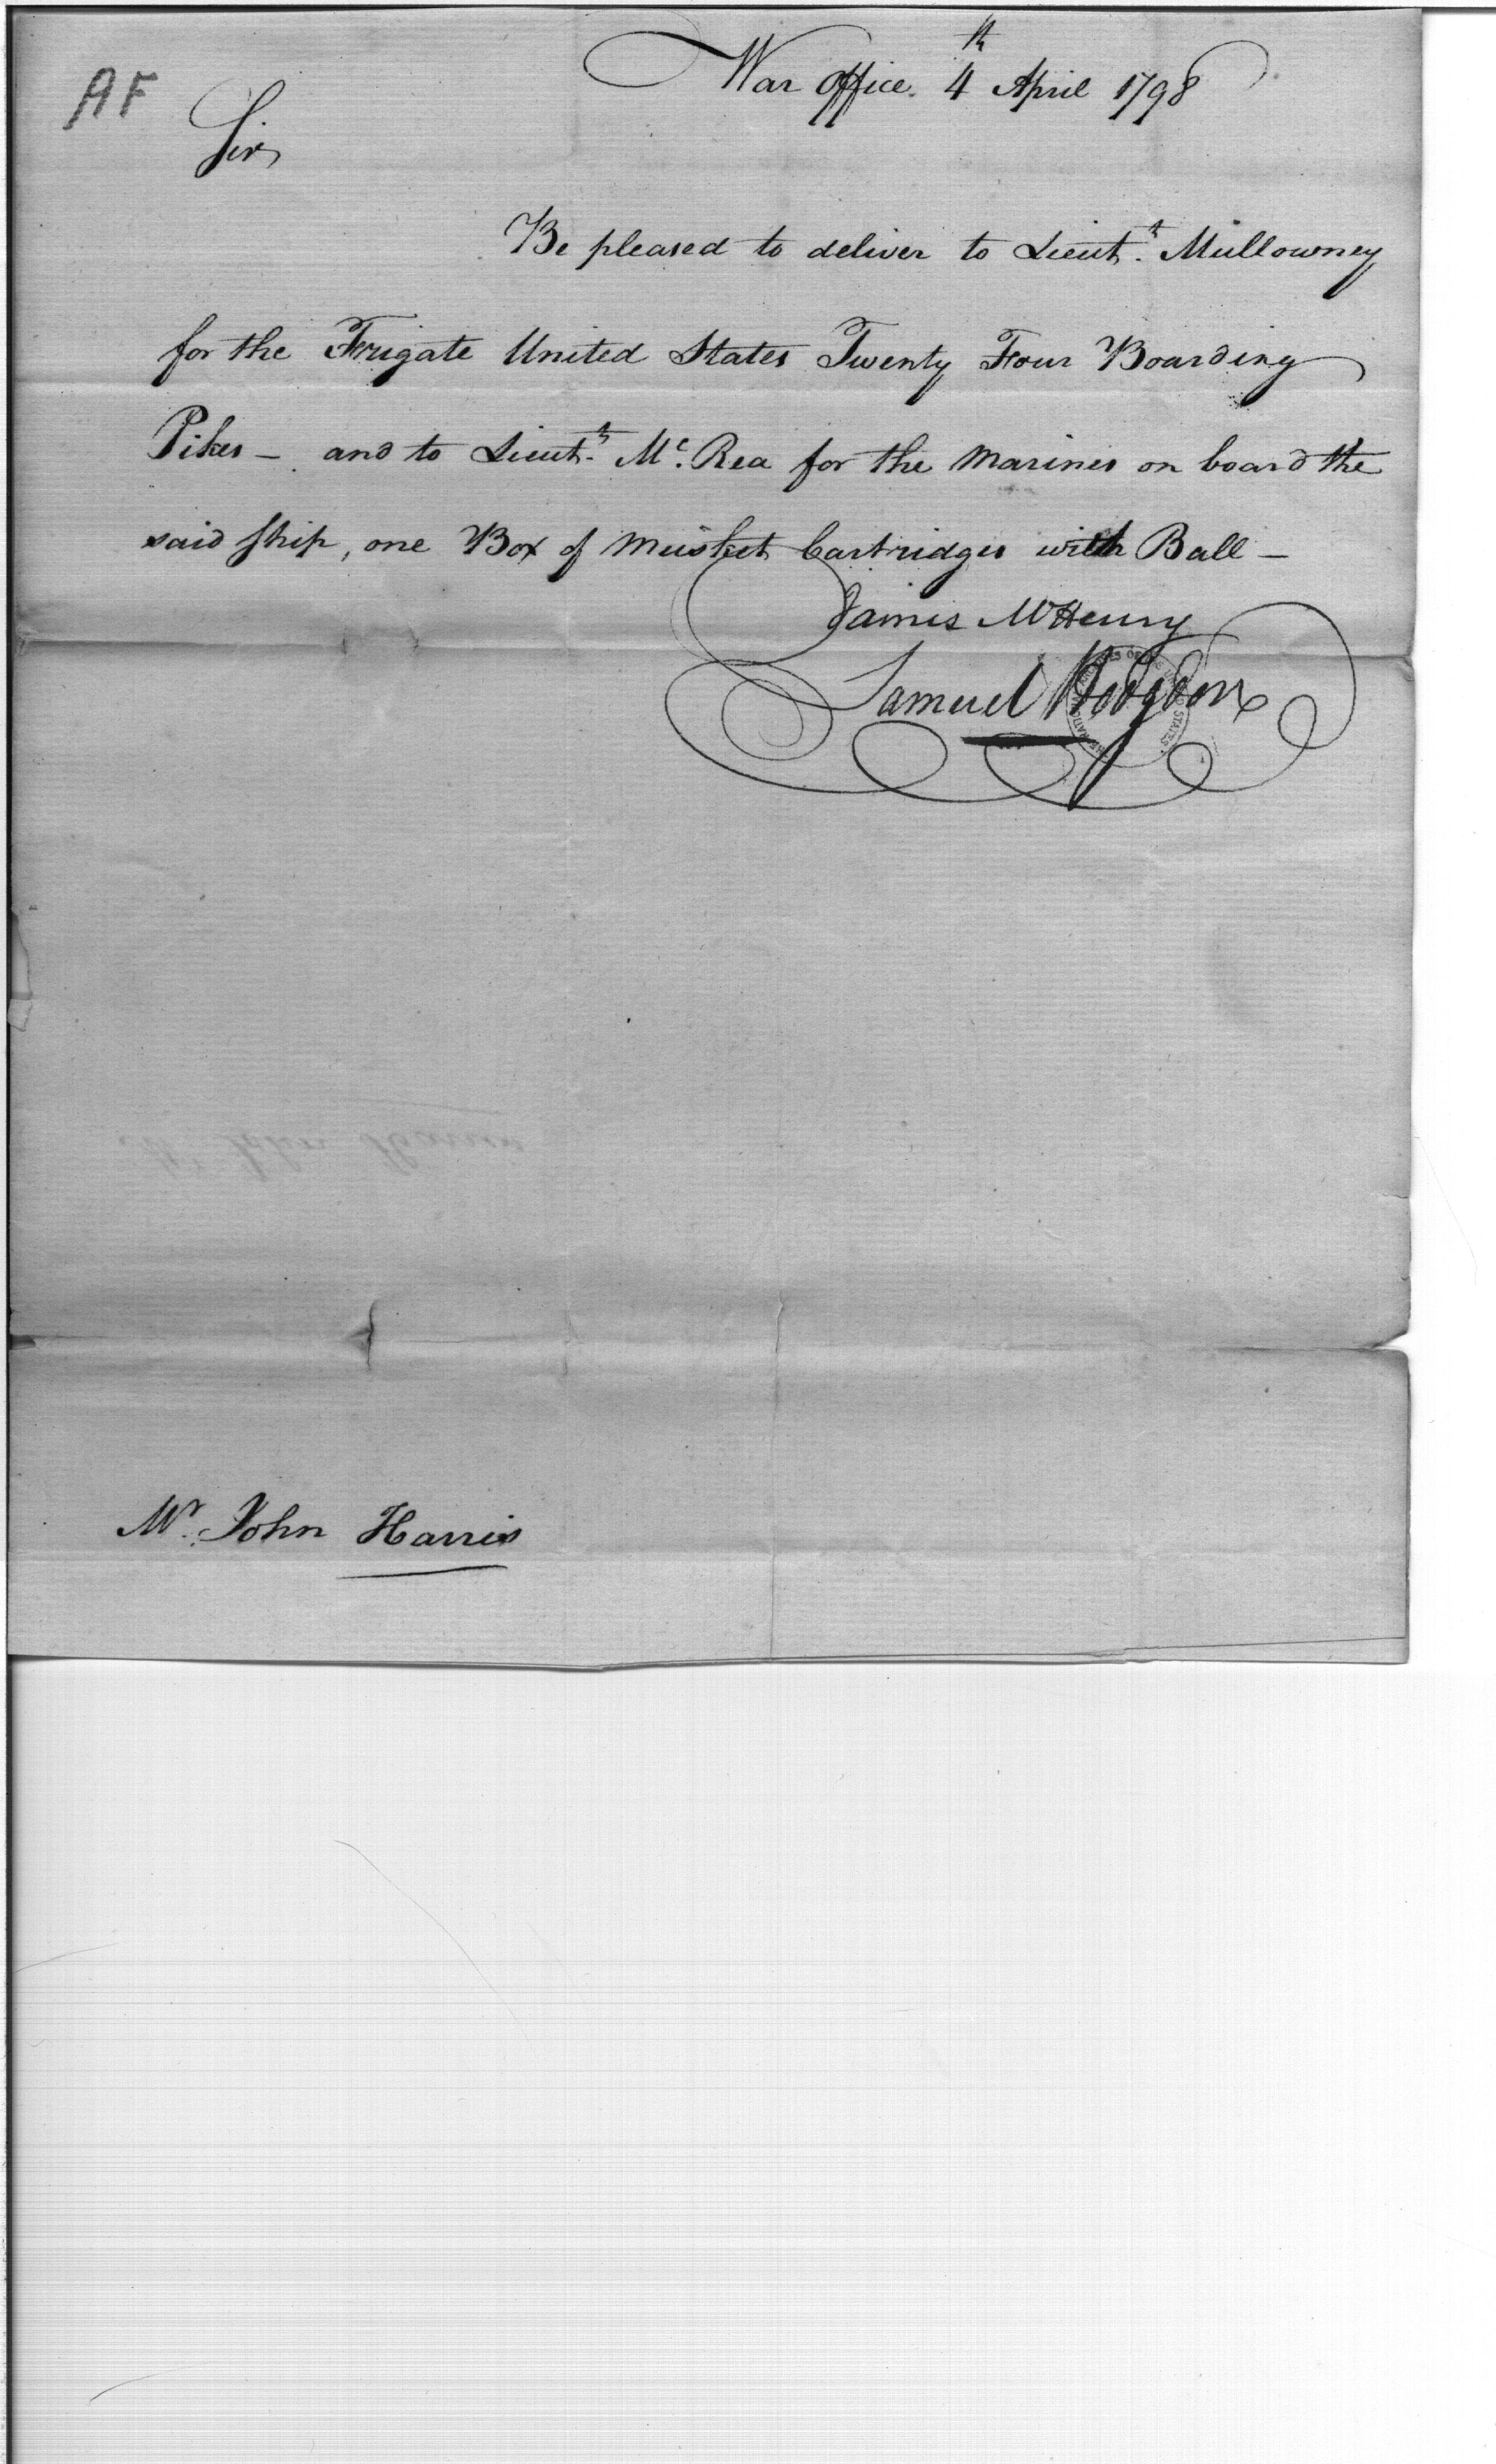 AF
War Office. 4th April 1798
Sir
Be pleased to deliver to Lieut.t Mullowney
for the Frigate United States Twenty Four Boarding
Pikes – and to Lieut.t Mc. Rea for the Marines on board the
said ship, one Box of Musket Cartridges with Ball –
James McHenry
Samuel Hodgdon
Mr. John Harris